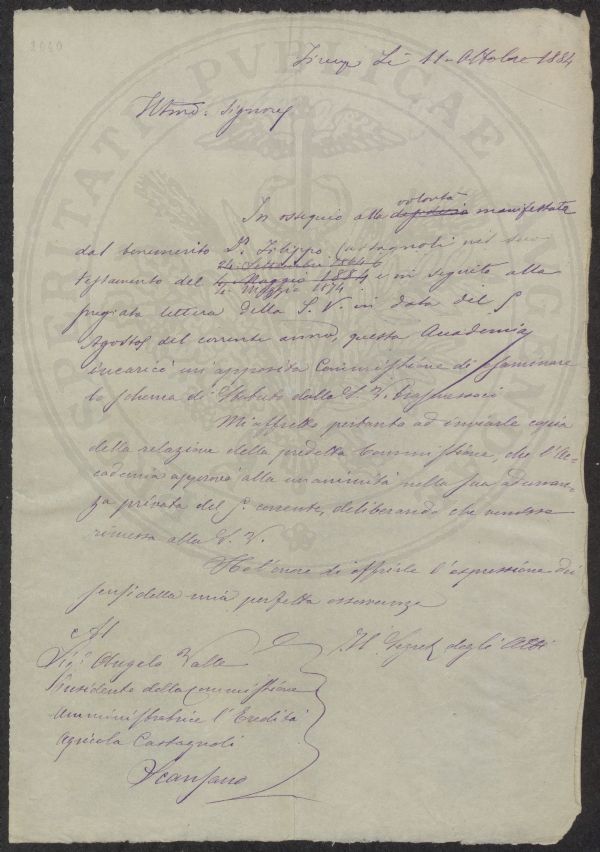 Firenze Li 11 Ottobre 1884
Illmo: Signore
volontà
In ossequio alla manifestata
dal benemerito Dr. Filippo Castagnoli nel suo
24 Settembre 1864 e
testamento del 4 Maggio 1884 e in seguito alla
4 Maggio 1874
pregiata lettera della S. V. in data del 5
Agosto del corrente anno, questa Accademia
incaricò un'apposita Commissione di esaminare
lo schema di Statuto dalla S. V. trasmessoci
Mi affretto pertanto ad inviarle copia
della relazione della predetta Commissione, che l'Ac-
cademia approvò alla unanimità nella sua adunan-
za privata del 5 corrente, deliberando che venisse
rimessa alla S. V.
Ho l'onore di offrirle l'espressione dei
sensi della mia perfetta osservanza
Al
Sigr Angelo Valle
Il Segret. degli Atti
Presidente della Commissione
Amministratrice l'Eredità
Agricola Castagnoli
Scansano